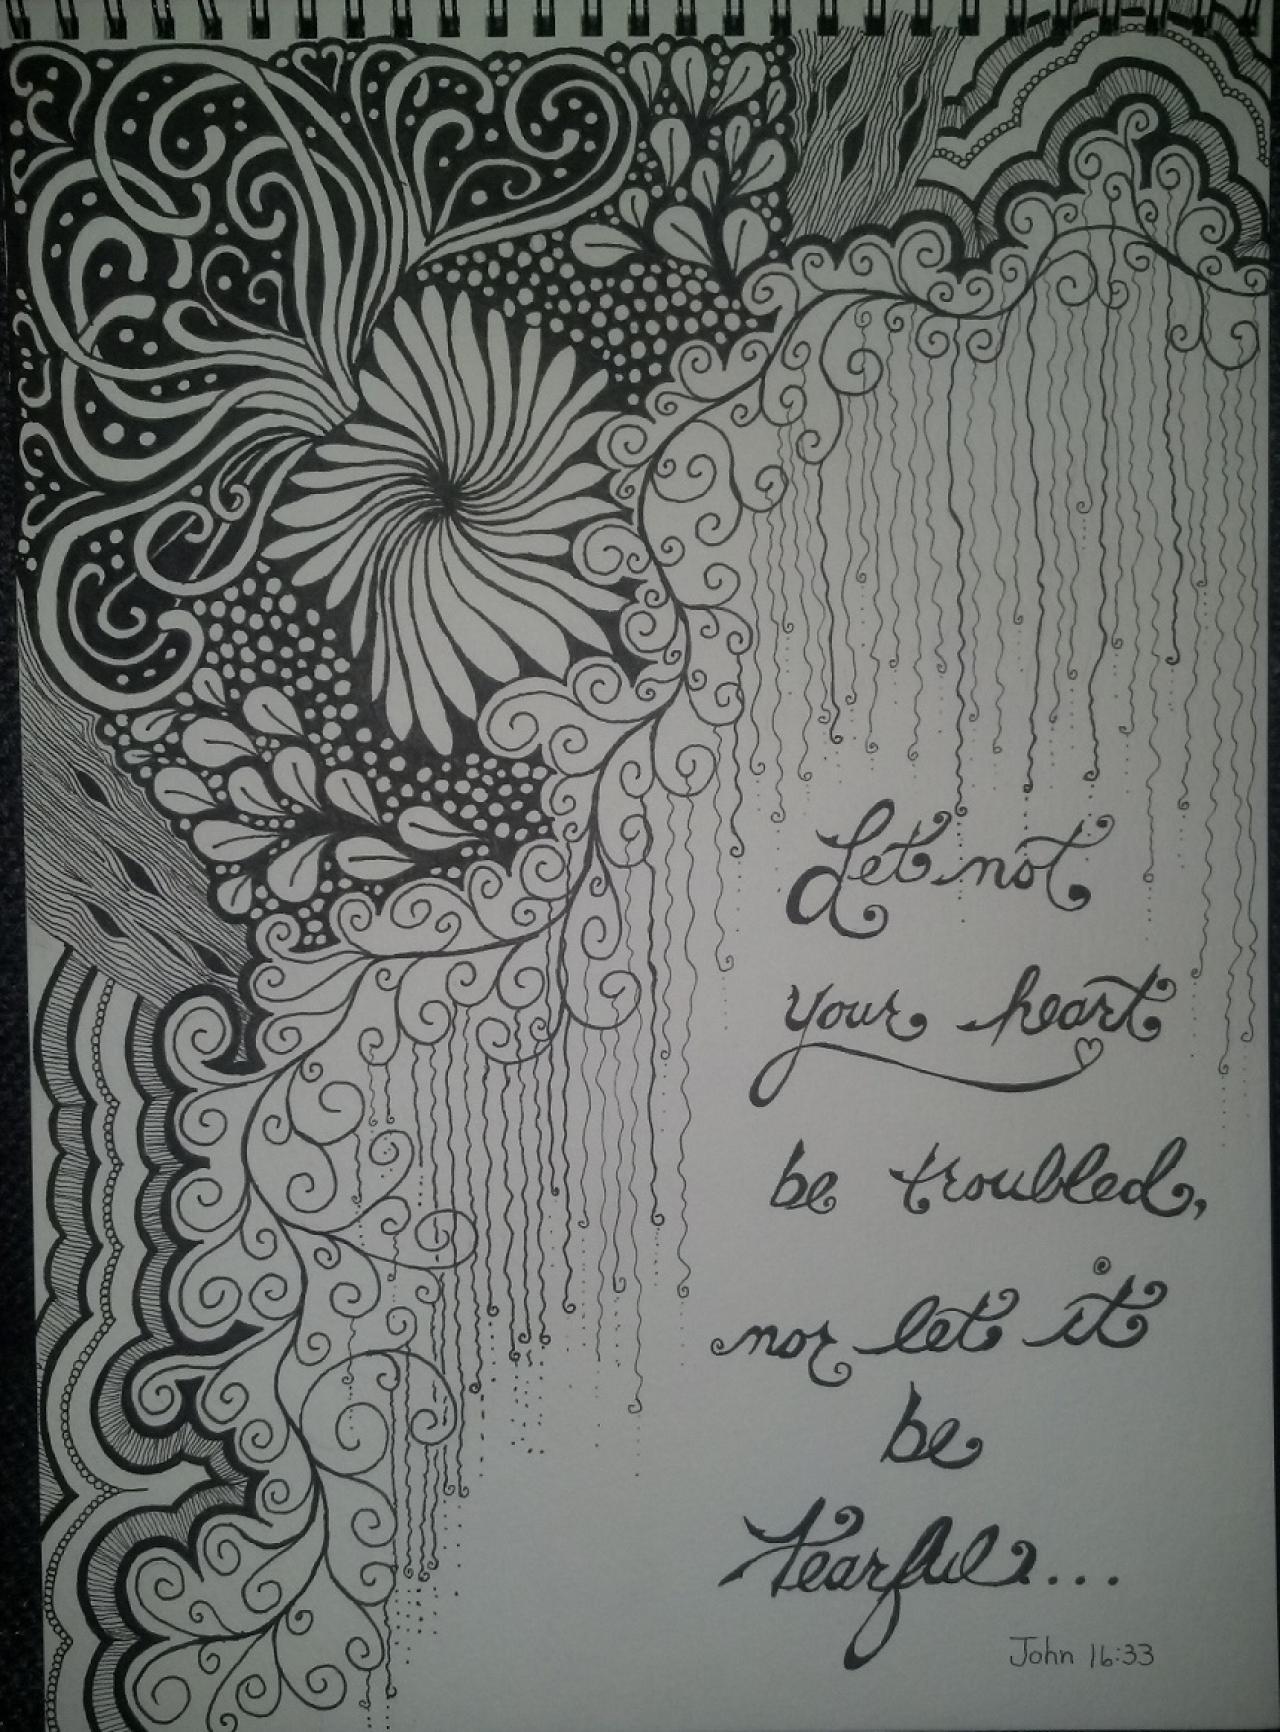 Let not
your heart
be troubled,
nor let it
be
fearful...
John 16:33